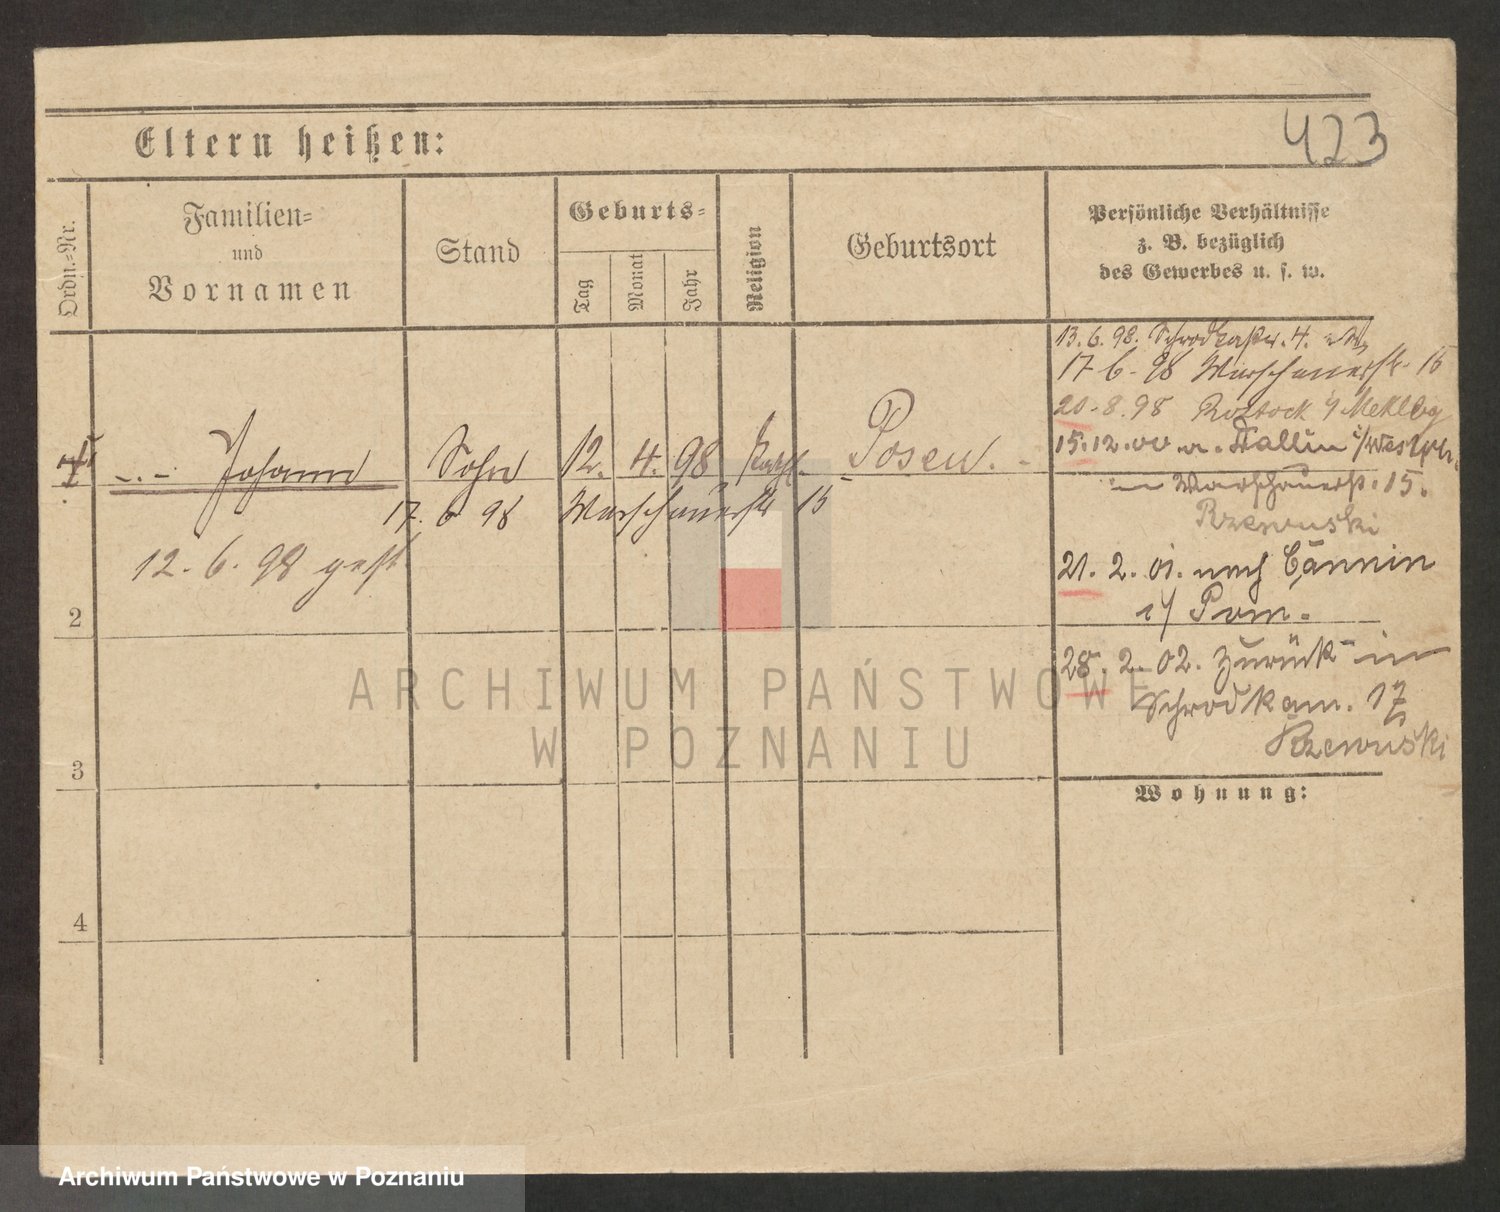 423
Eltern heißen:
Ordn.-Nr.
Familien-
und
Vornamen
Stand
Geburts-
Tag
Monat
Jahr
Religion
Geburtsort
Persönliche Verhältnisse
z. B. bezüglich
des Gewerbes u. s. w.
Johann Sohn 12. 4. 98 Kath. Posen.
17. 6 98 Warschauerstr 15
12. 6. 98 gest
13. 6. 98. 4.
17 6 - 98 Warschauerstr. 15
20. 8. 98 Rostock i/ Meklbg
15. 12. 00 n. i/Westpr.
in Warschauerst. 15.
Rzewuski
21. 2. 01. nach Cännin
i/ Pom.
28. 2. 02. zurück in
Schrodkam. 17
Rzewuski
2
3
4
Wohnung:
ARCHIWUM PAŃSTWOWE
W POZNANIU
Archiwum Państwowe w Poznaniu